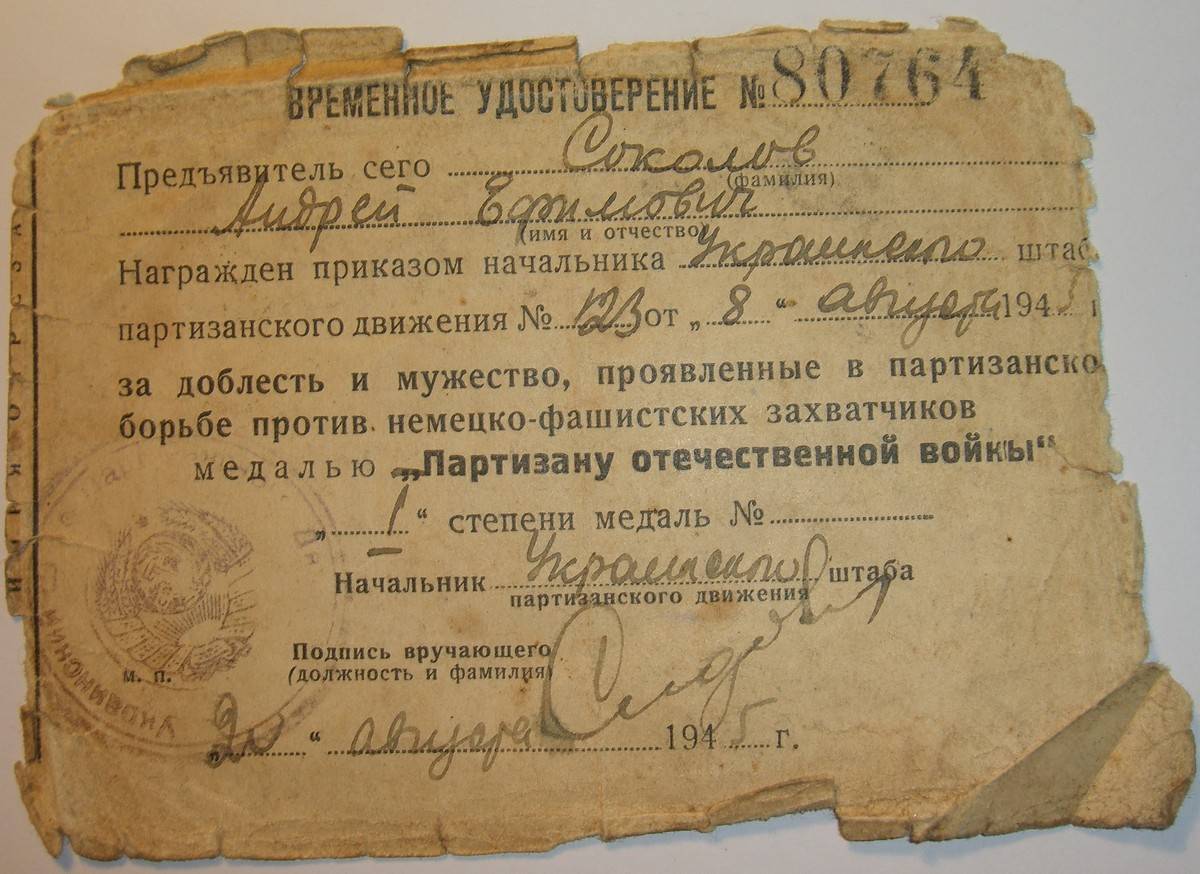 ВРЕМЕННОЕ УДОСТОВЕРЕНИЕ № 80764
Предъявитель сего Соколов
(фамилия)
Андрей Ефимович
(имя и отчество)
Награжден приказом начальника Украинского штаб
партизанского движения № 123 от „8“ августа 1945 г
за доблесть и мужество, проявленные в партизанско
борьбе против немецко-фашистских захватчиков
медалью „Партизану отечественной войны“
„I“ степени медаль №
Начальник Украинского штаба
партизанского движения
Подпись вручающего
(должность и фамилия)
м. п.
„20“ августа 1945 г.